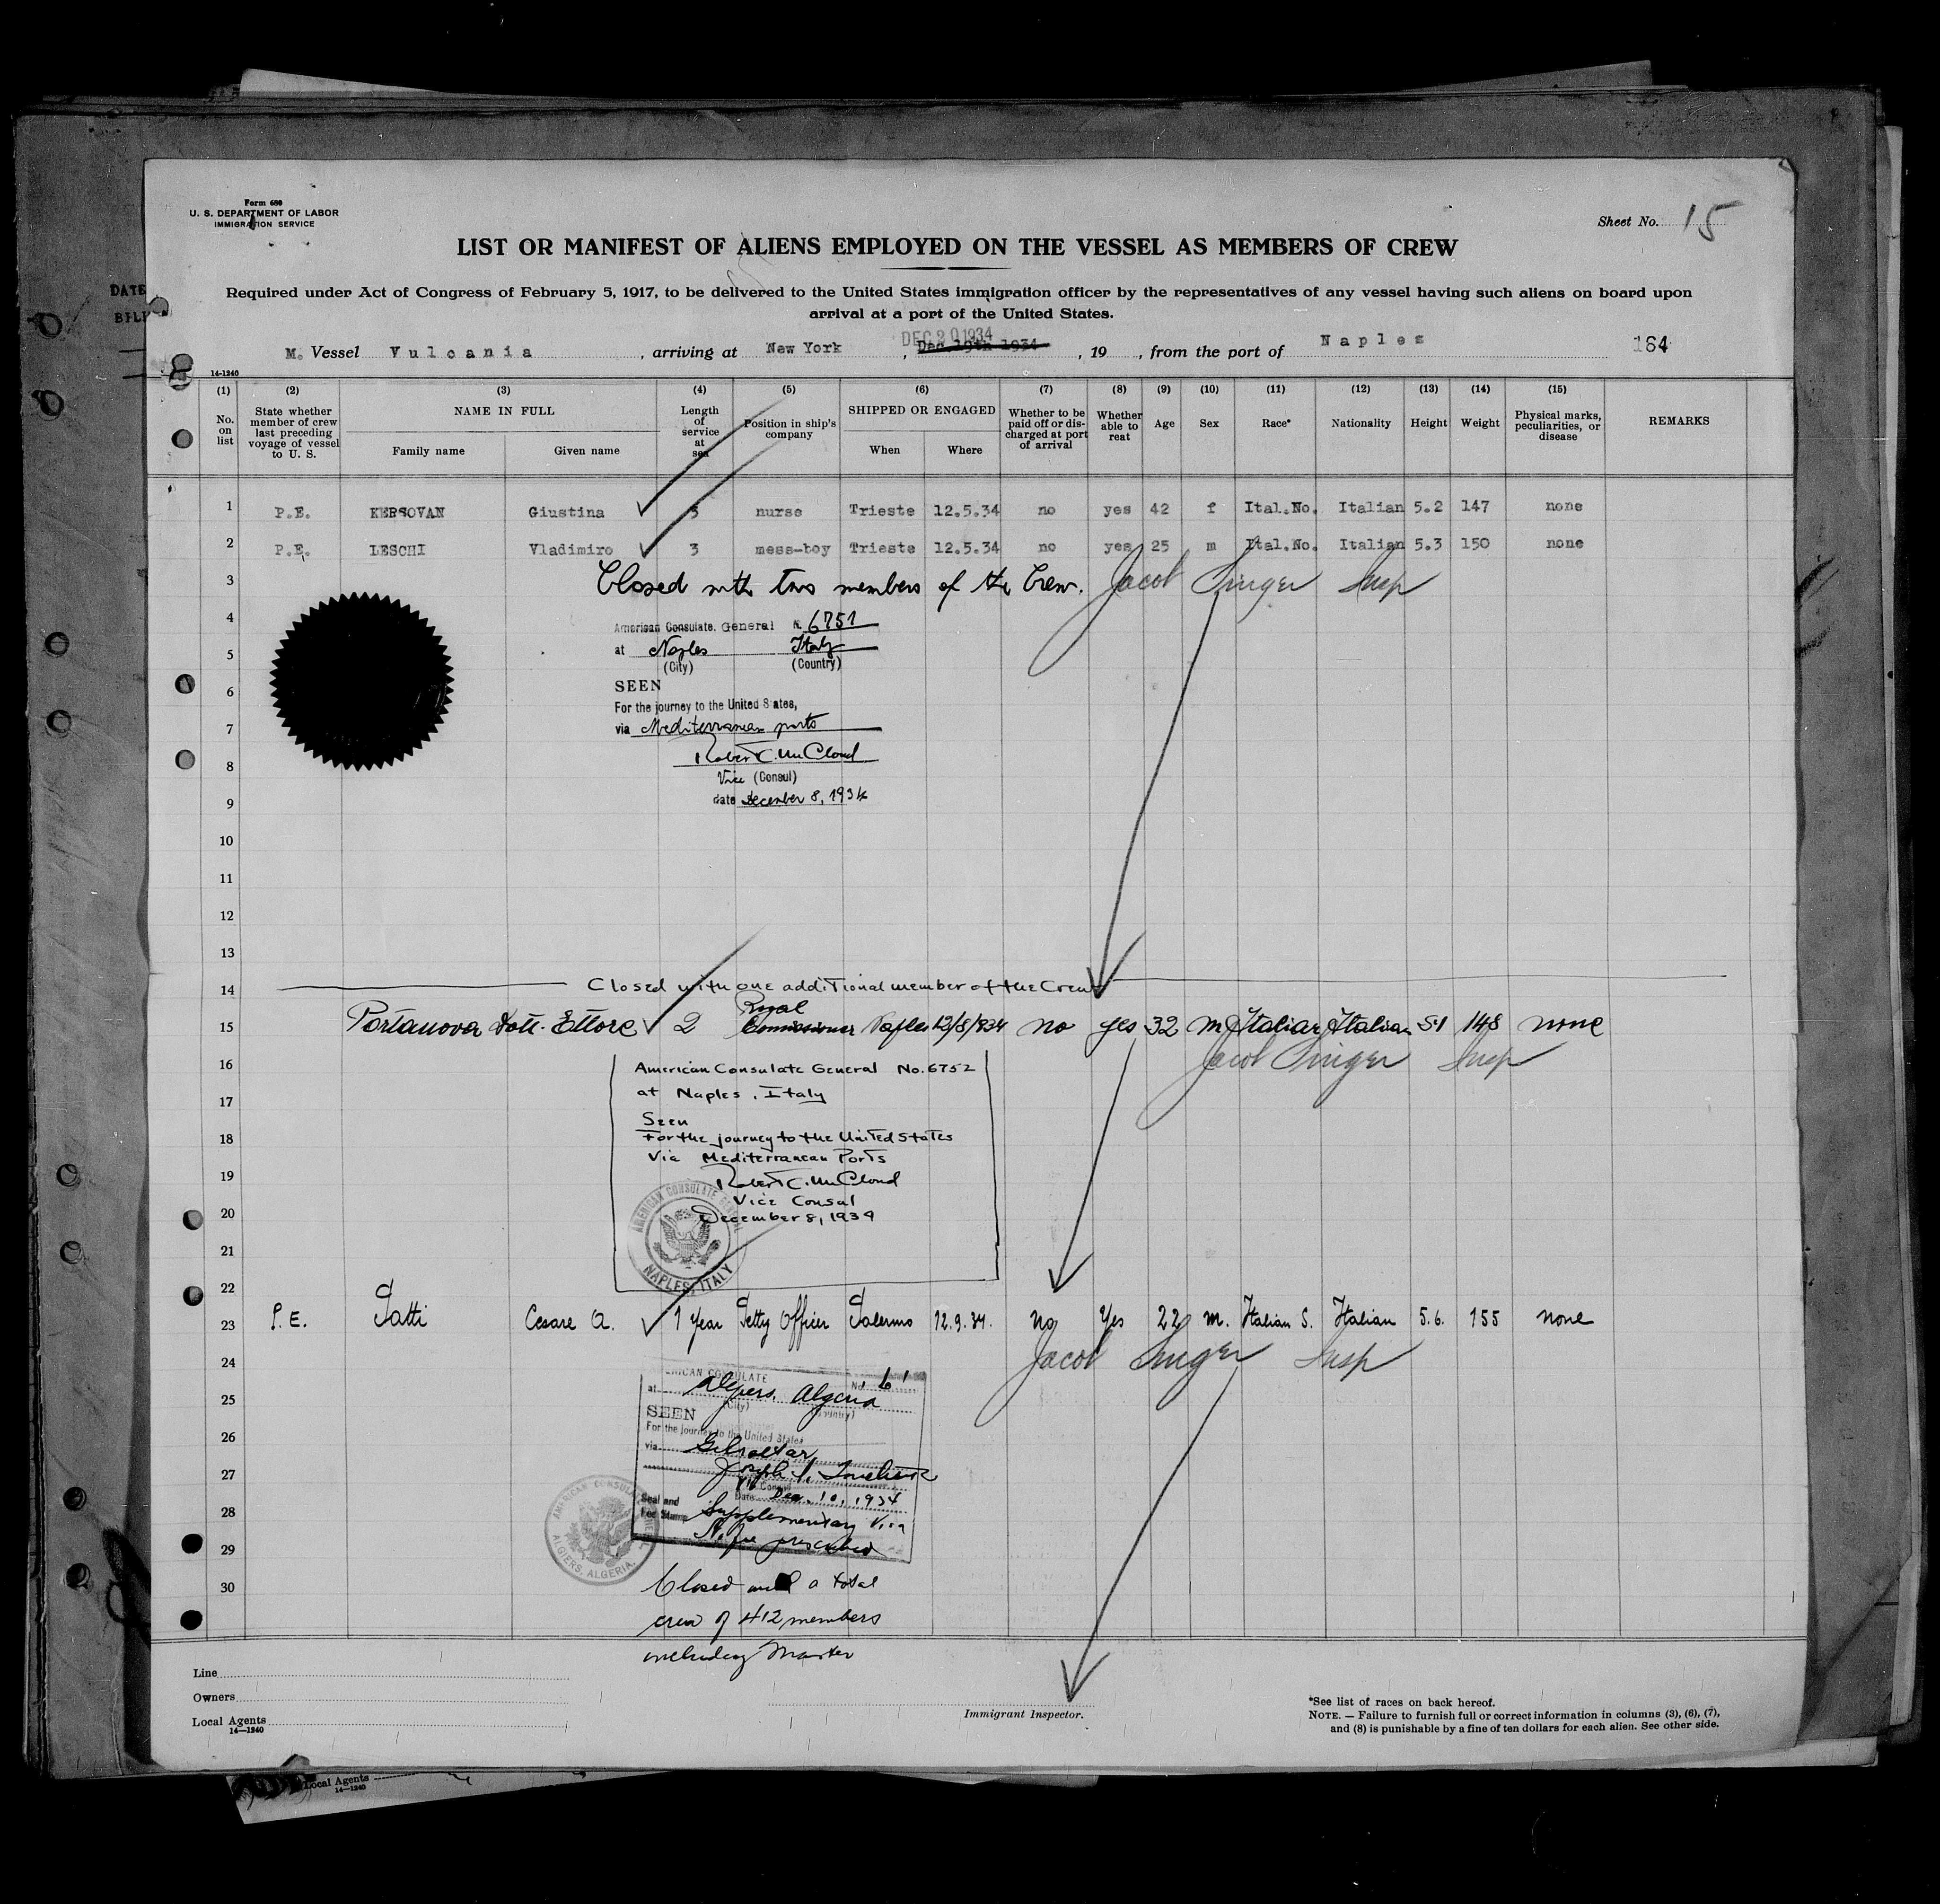 Form 680
U. S. DEPARTMENT OF LABOR
IMMIGRATION SERVICE
Sheet No. 15
LIST OR MANIFEST OF ALIENS EMPLOYED ON THE VESSEL AS MEMBERS OF CREW
Required under Act of Congress of February 5, 1917, to be delivered to the United States immigration officer by the representatives of any vessel having such aliens on board upon
arrival at a port of the United States.
DATE
DEC 20 1934
M. Vessel Vulcania, arriving at New York, Dec. 19th 1934, 19, from the port of Naples 184
14-1240
(1) (2) (3) (4) (5) (6) (7) (8) (9) (10) (11) (12) (13) (14) (15)
No. on list State whether member of crew last preceding voyage of vessel to U. S. NAME IN FULL Family name Given name Length of service at sea Position in ship's company SHIPPED OR ENGAGED When Where Whether to be paid off or discharged at port of arrival Whether able to reat Age Sex Race* Nationality Height Weight Physical marks, peculiarities, or disease REMARKS
1 P.E. KERSOVAN Giustina 5 nurse Trieste 12.5.34 no yes 42 f Ital.No. Italian 5.2 147 none
2 P.E. LESCHI Vladimiro 3 mess-boy Trieste 12.5.34 no yes 25 m Ital.No. Italian 5.3 150 none
3 Closed with two members of the Crew. Jacob Singer Insp
4 American Consulate General N. 6751
5 at Naples Italy
(City) (Country)
6 SEEN
For the journey to the United States,
7 via Mediterranean ports
8 Robert C. McCloud
Vice (Consul)
9 date December 8, 1934
10
11
12
13
14 Closed with one additional member of the Crew
Royal
15 Portanova Dott. Ettore 2 Commissioner Naples 12/8/934 no yes 32 m Italian Italian 5.1 148 none
16 American Consulate General No. 6752 Jacob Singer Insp
17 at Naples, Italy
Seen
18 For the journey to the United States
Via Mediterranean Ports
19 Robert C. McCloud
Vice Consul
20 December 8, 1934
AMERICAN CONSULATE GENERAL
21
NAPLES, ITALY
22
23 P.E. Patti Cesare A. 1 Year Petty Officer Palermo 12.9.34. no Yes 22 m. Italian S. Italian 5.6. 155 none
24 Jacob Singer Insp
AMERICAN CONSULATE No. 61
at Algiers, Algeria
25 (City) (Country)
SEEN
26 For the journey to the United States
via Gibraltar
27 Joseph I.
Consul
Date Dec. 10, 1934
28 Seal and Fee Stamp Supplementary Visa
29 No fee prescribed
AMERICAN CONSULATE
ALGIERS, ALGERIA.
30 Closed with a total
crew of 412 members
including Master
Line
Owners
Local Agents
14—1240
Immigrant Inspector.
*See list of races on back hereof.
NOTE. — Failure to furnish full or correct information in columns (3), (6), (7),
and (8) is punishable by a fine of ten dollars for each alien. See other side.
Local Agents
14—1240